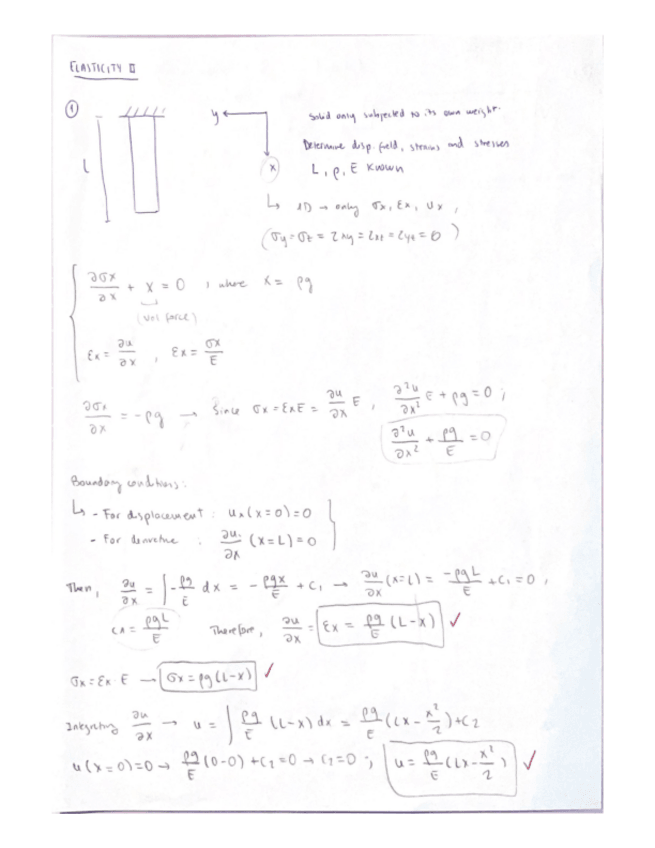 ELASTICITY II
①
L
y
x
Solid only subjected to its own weight.
Determine disp. field, strains and stresses
L, ρ, E known
↳ 1D → only σx, εx, Ux,
(σy = σz = τxy = τxz = τyz = 0)
∂σx/∂x + X = 0, where X = ρg
(vol force)
εx = ∂u/∂x, εx = σx/E
∂σx/∂x = -ρg → Since σx = εxE = ∂u/∂x E, ∂²u/∂x² E + ρg = 0;
∂²u/∂x² + ρg/E = 0
Boundary conditions:
↳ - For displacement: ux(x=0)=0
- For derivative: ∂u/∂x (x=L)=0
Then, ∂u/∂x = ∫-ρg/E dx = -ρgx/E + C1 → ∂u/∂x (x=L) = -ρgL/E + C1 = 0,
C1 = ρgL/E Therefore, ∂u/∂x = εx = ρg/E (L-x) ✓
σx = εx · E → σx = ρg(L-x) ✓
Integrating ∂u/∂x → u = ∫ρg/E (L-x)dx = ρg/E (Lx - x²/2) + C2
u(x=0)=0 → ρg/E (0-0) + C2 = 0 → C2 = 0; u = ρg/E (Lx - x²/2) ✓